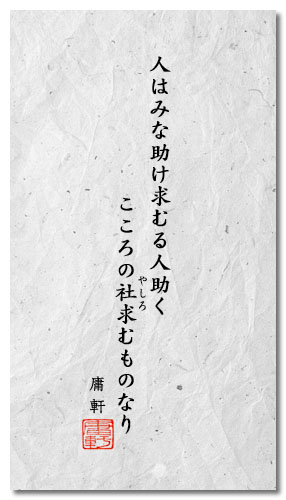 人はみな助け求むる人助く
こころの社求むものなり
やしろ
庸軒